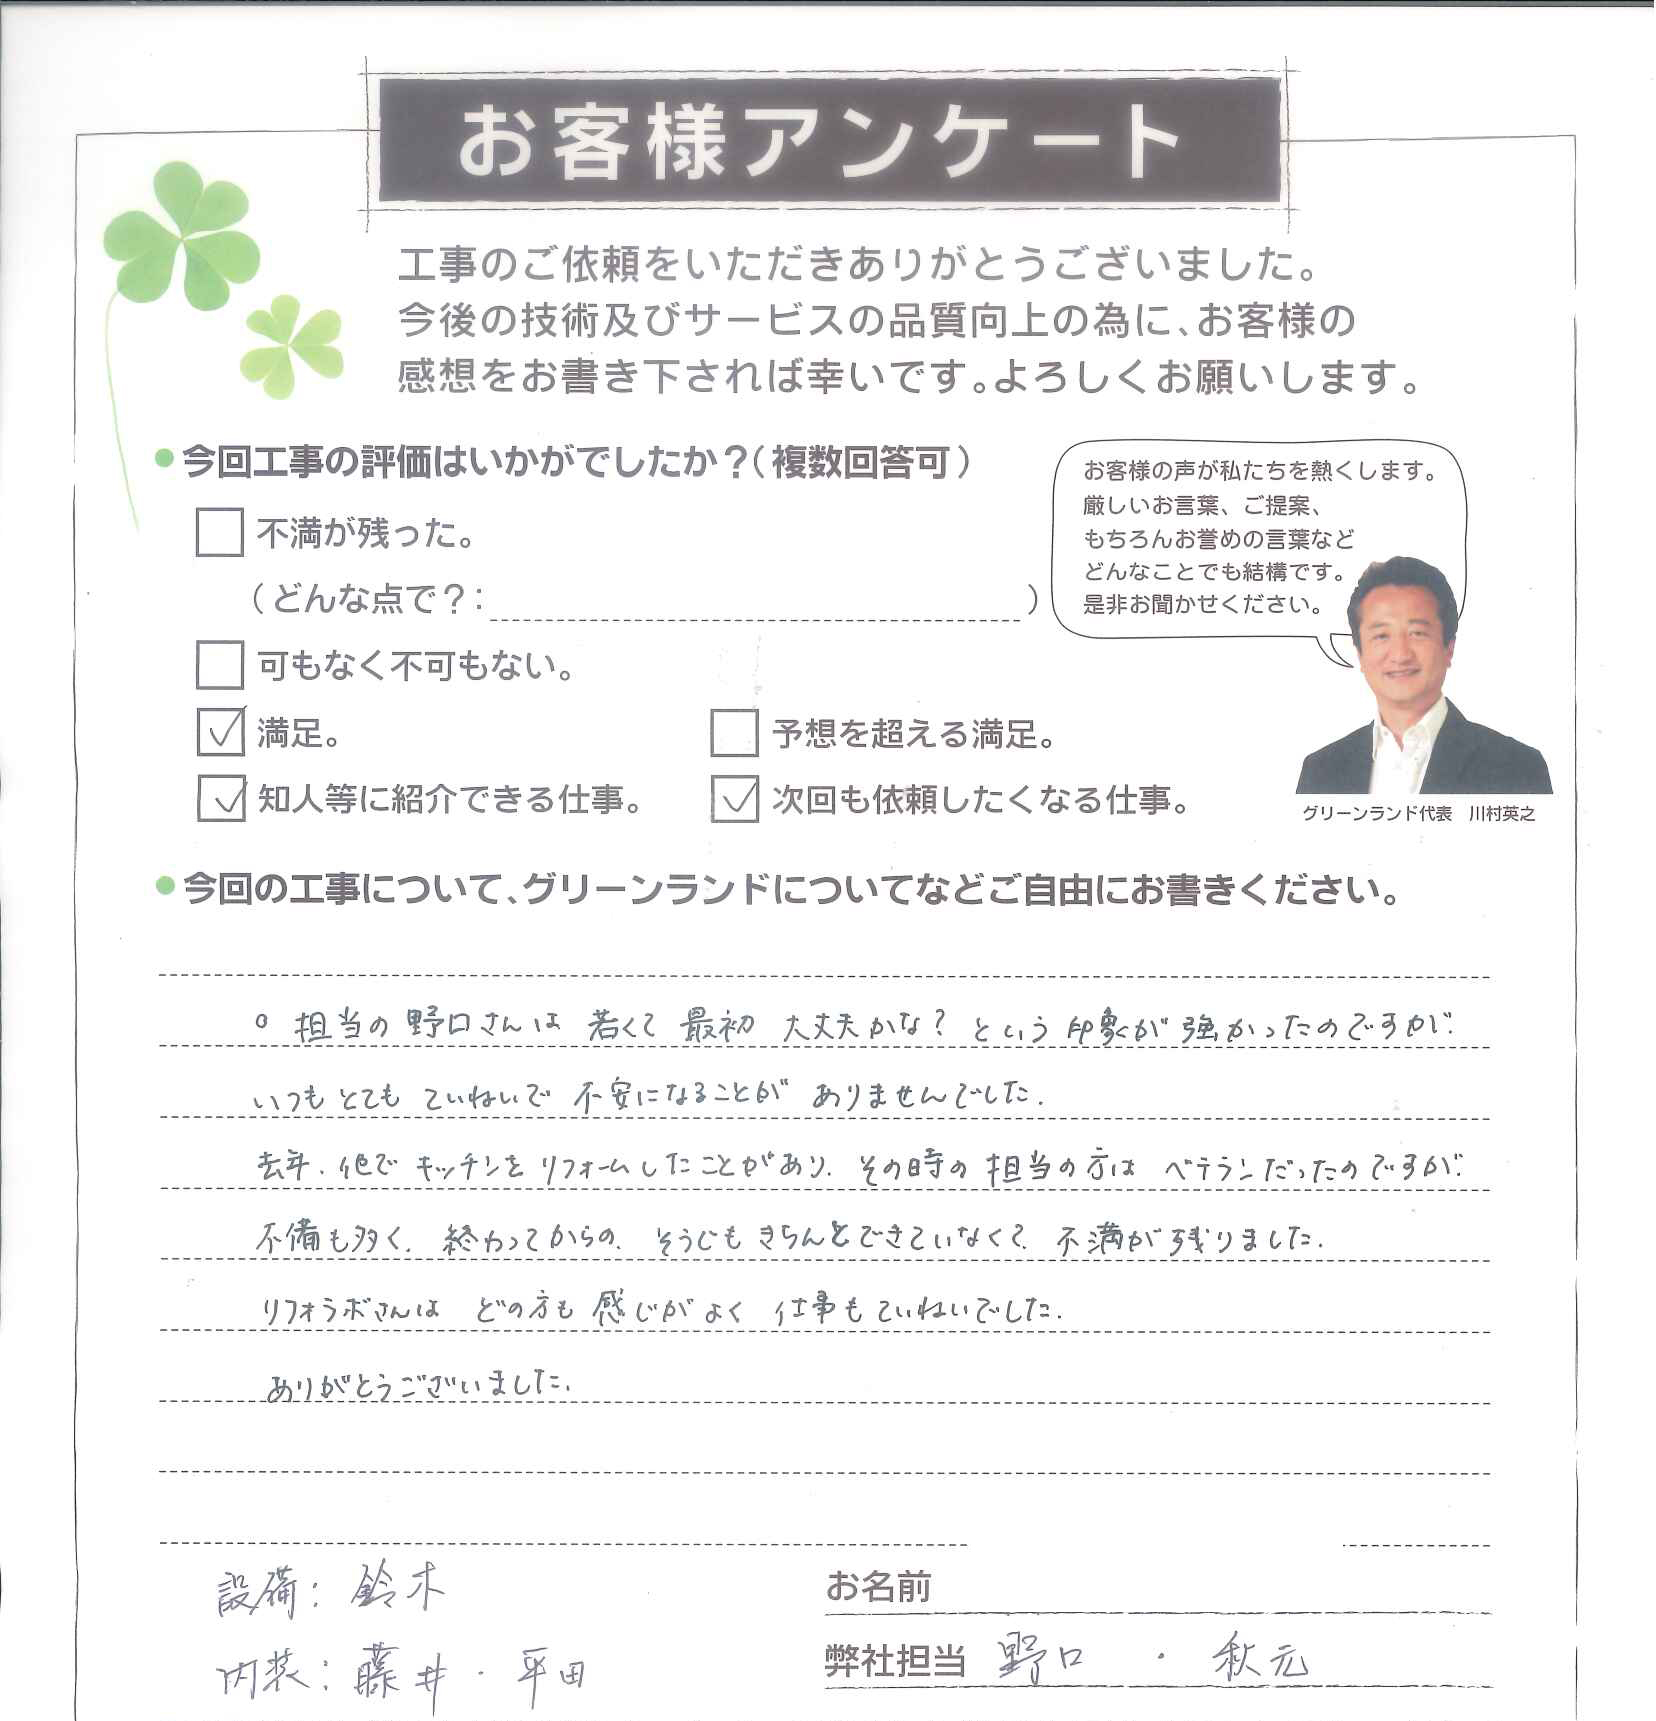 お客様アンケート
工事のご依頼をいただきありがとうございました。
今後の技術及びサービスの品質向上の為に、お客様の
感想をお書き下されば幸いです。よろしくお願いします。
●今回工事の評価はいかがでしたか？（複数回答可）
不満が残った。
（どんな点で？：　）
可もなく不可もない。
満足。
予想を超える満足。
知人等に紹介できる仕事。
次回も依頼したくなる仕事。
お客様の声が私たちを熱くします。
厳しいお言葉、ご提案、
もちろんお誉めの言葉など
どんなことでも結構です。
是非お聞かせください。
グリーンランド代表　川村英之
●今回の工事について、グリーンランドについてなどご自由にお書きください。
○ 担当の野口さんは 若くて 最初 大丈夫かな？ という 印象が 強かったのですが、
いつも とても ていねいで 不安になることが ありませんでした。
去年、他で キッチンを リフォームしたことがあり、その時の 担当の方は ベテランだったのですが、
不備も多く、終わってからの、そうじも きちんとできていなくて、不満が残りました。
リフォラボさんは どの方も 感じがよく 仕事も ていねいでした。
ありがとうございました。
設備：鈴木
内装：藤井・平田
お名前
弊社担当 野口 ・ 秋元